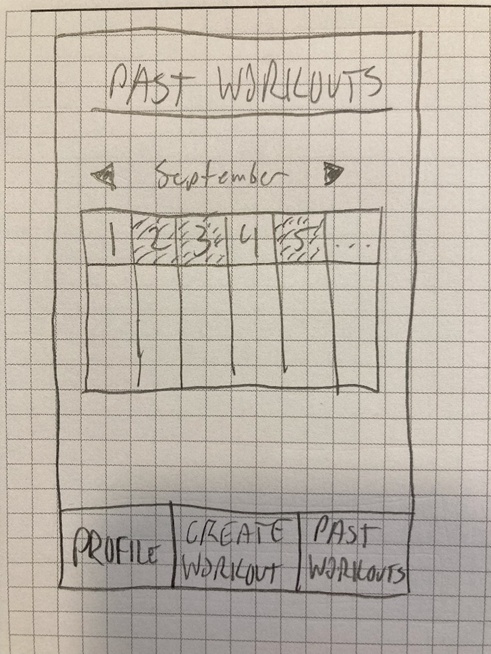 PAST WORKOUTS
September
1 2 3 4 5 ...
PROFILE
CREATE
WORKOUT
PAST
WORKOUTS